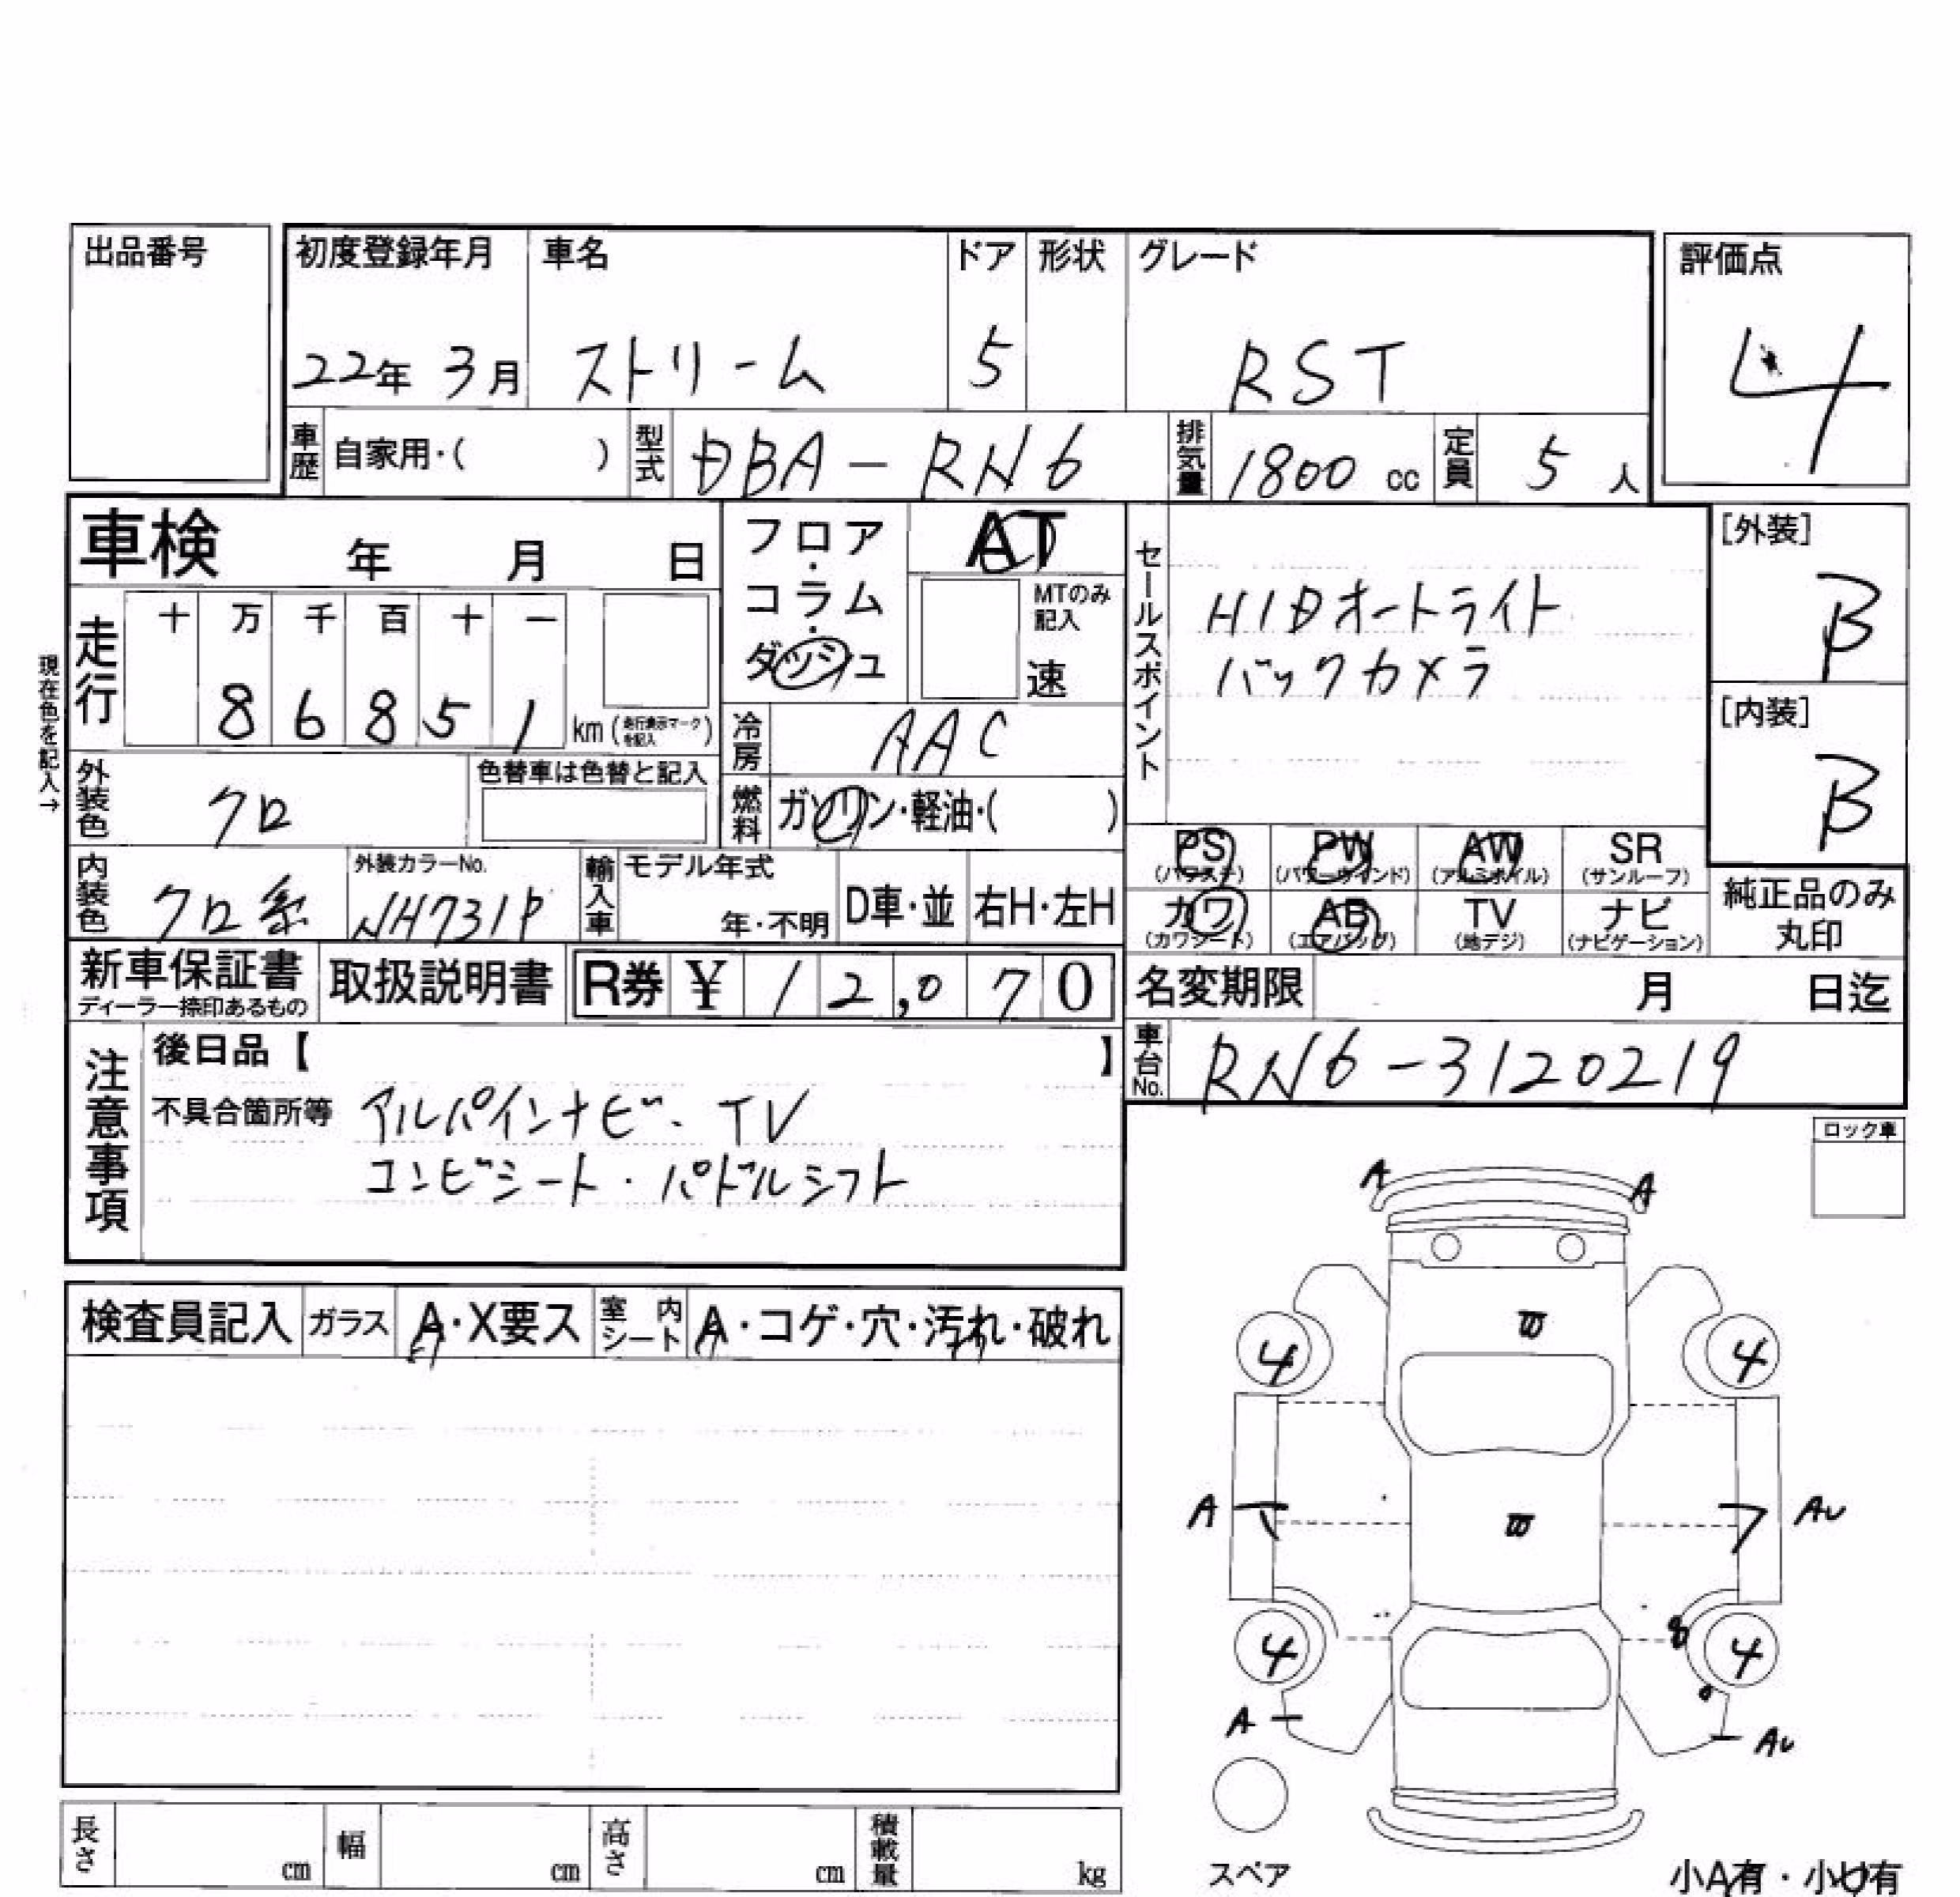 出品番号
初度登録年月 車名 ドア 形状 グレード 評価点
22年 3月 ストリーム 5 RST 4
車歴 自家用・( ) 型式 DBA-RN6 排気量 1800 cc 定員 5 人
車検 年 月 日
フロア・コラム・ダッシュ AT
MTのみ記入
速
走行 十 万 千 百 十 一
8 6 8 5 1 km (走行表示マークを記入)
現在色を記入→
冷房 AAC
外装色 クロ
色替車は色替と記入
燃料 ガソリン・軽油・( )
内装色 クロ系
外装カラーNo. NH731P
輸入車 モデル年式 年・不明 D車・並 右H・左H
セールスポイント
HIDオートライト
バックカメラ
[外装] B
[内装] B
PS (パワステ) PW (パワーウインド) AW (アルミホイル) SR (サンルーフ)
カワ (カワシート) AB (エアバッグ) TV (地デジ) ナビ (ナビゲーション)
純正品のみ丸印
新車保証書 ディーラー捺印あるもの
取扱説明書
R券 ¥ 12,070
名変期限 月 日迄
車台No. RN6-3120219
注意事項
後日品【 】
不具合箇所等 アルパインナビ・TV
コンビシート・パドルシフト
ロック車
検査員記入 ガラス A・X要ス 室内シート A・コゲ・穴・汚れ・破れ
A A
4 4
A AU
4 8 4
A AU
スペア
長さ cm 幅 cm 高さ cm 積載量 kg
小A有・小U有